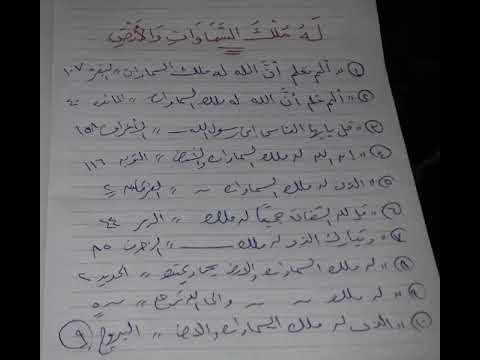 لَهُ مُلْكَ السَّمَاوَاتِ وَالأَرْضِ
١ " ألم تعلم أنَّ الله له ملك السماوات " البقرة ١٠٧
٢ " ألم تعلم أنَّ الله له ملك السماوات " المائدة ٤٠
٣ " قل يايها الناس إنى رسول الله — " الأعراف ١٥٨
٤ " إن الله له ملك السماوات والأرض " التوبة ١١٦
٥ " الذى له ملك السماوات ~ " الفرقان ٢
٦ " قل لله الشفاعة جميعًا له ملك " الزمر ٤٤
٧ " وتبارك الذى له ملك — " الزخرف ٨٥
٨ " له ملك السماوات والأرض يحيى ويميت " الحديد ٢
٩ " له ملك ~ ~ والى الله ترجع " ٥
١٠ " الذى له ملك السماوات والأرض " البروج ٩